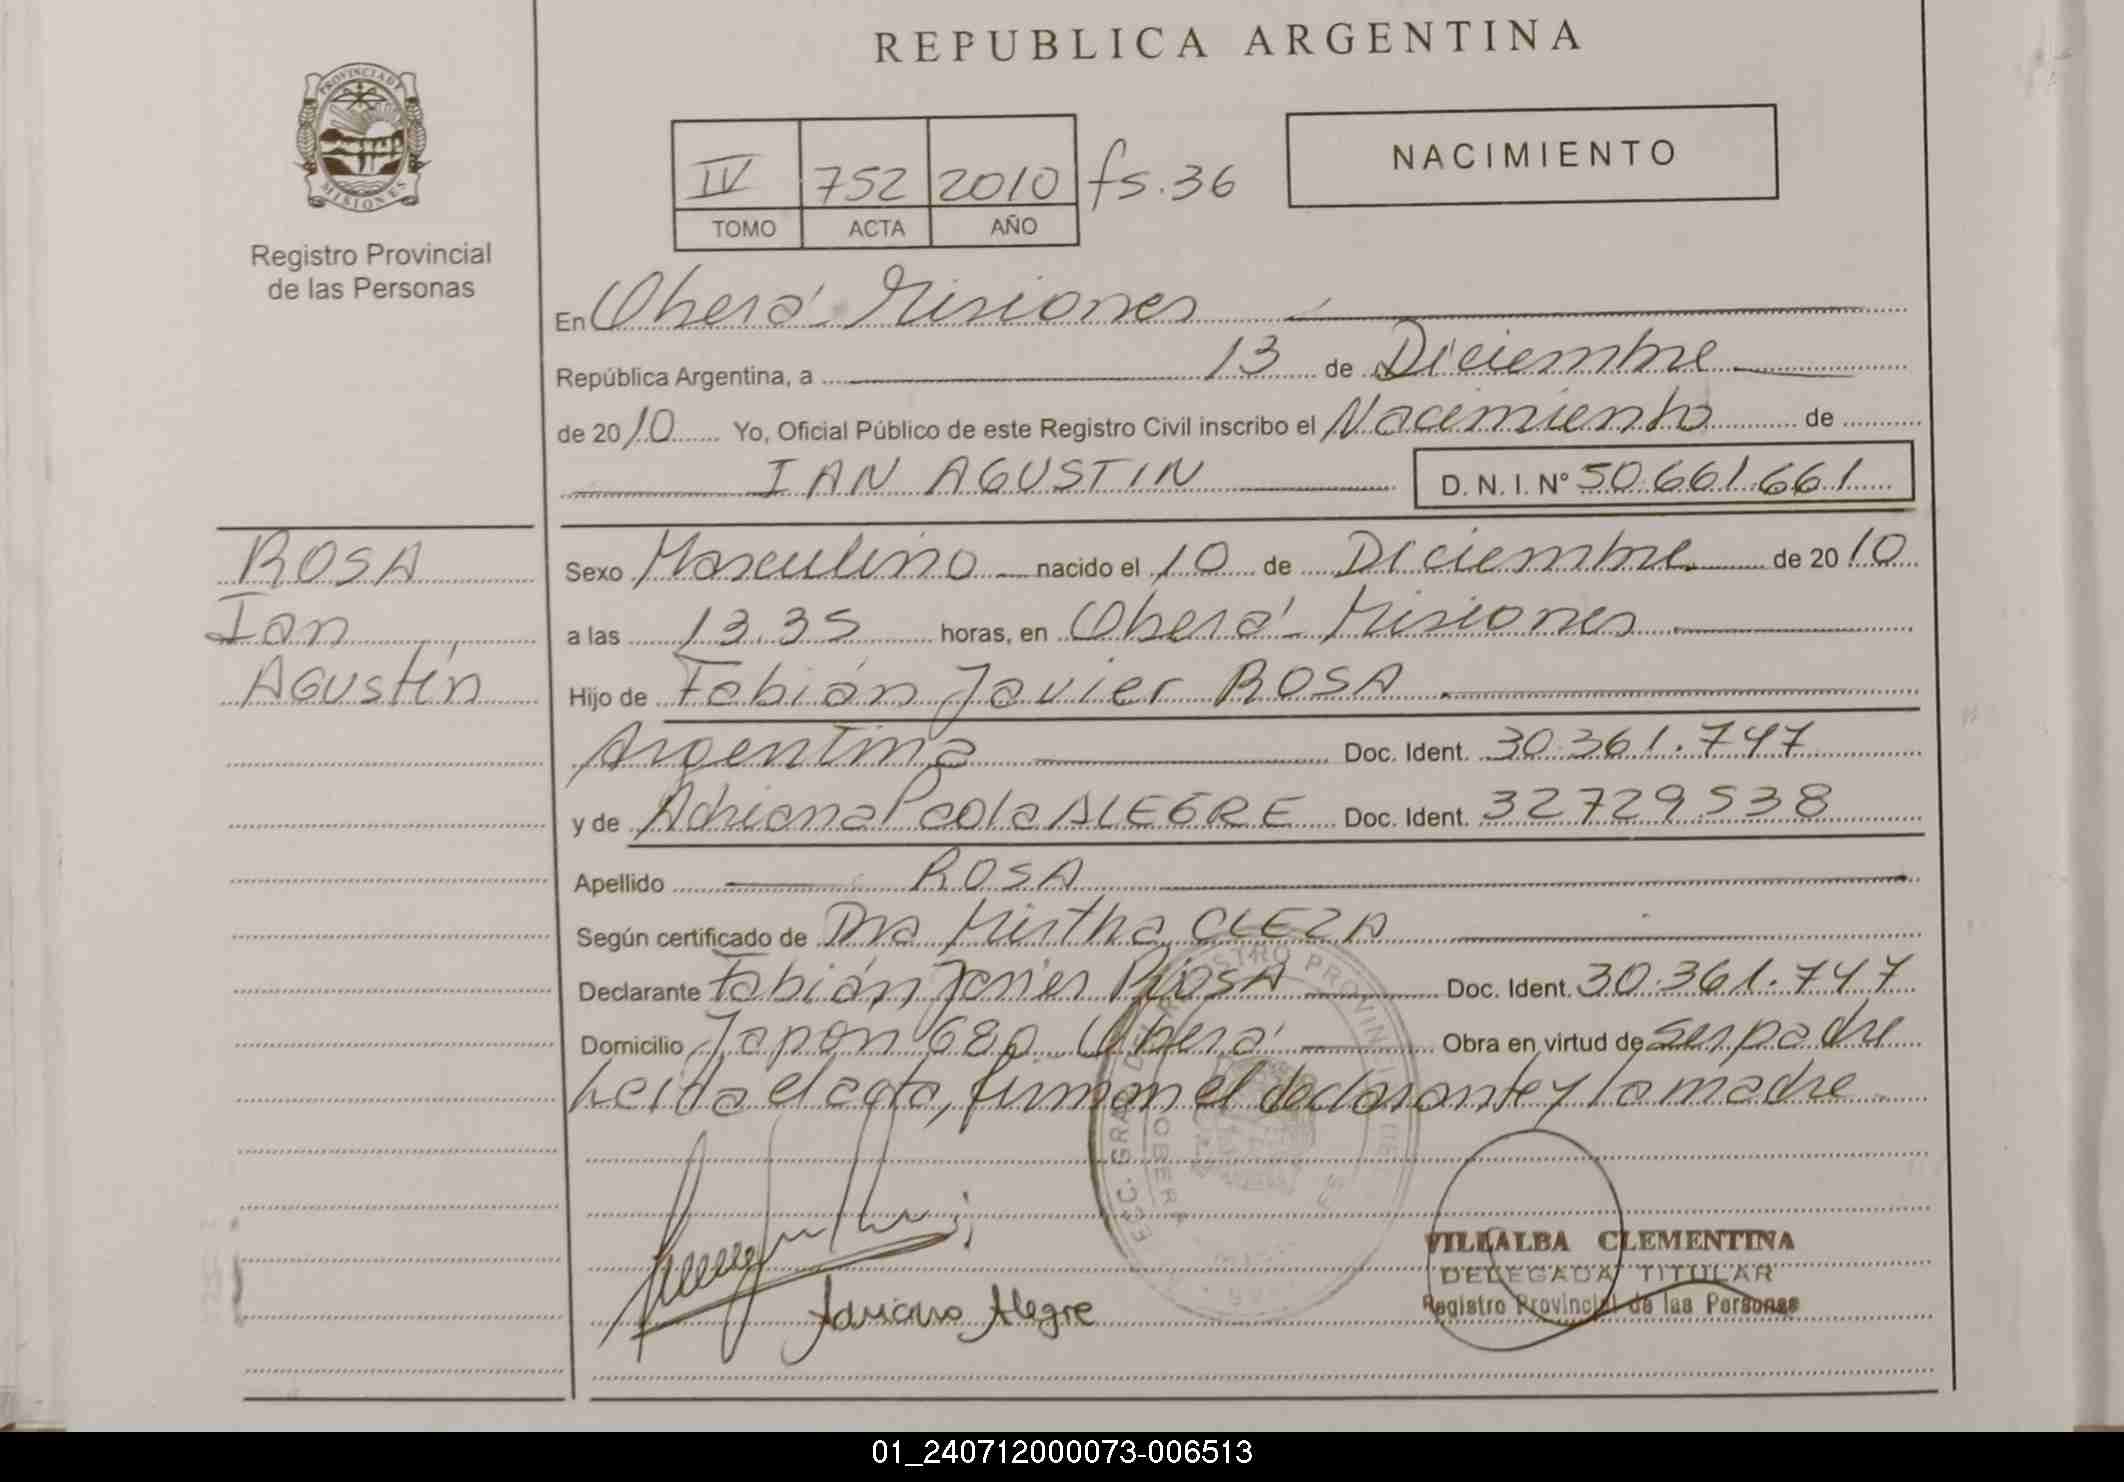 REPUBLICA ARGENTINA
PROVINCIA D
MISIONES
Registro Provincial
de las Personas
NACIMIENTO
IV 752 2010 fs.36
TOMO ACTA AÑO
En Oberá Misiones
República Argentina, a 13 de Diciembre
de 2010 Yo, Oficial Público de este Registro Civil inscribo el Nacimiento de
IAN AGUSTIN D. N. I. N° 50.661.661
ROSA
Ian
Agustín
Sexo Masculino nacido el 10 de Diciembre de 2010
a las 13.35 horas, en Oberá Misiones
Hijo de Fabián Javier ROSA
Argentina Doc. Ident. 30.361.747
y de Adriana Paola ALEGRE Doc. Ident. 32729538
Apellido ROSA
Según certificado de Dra Mirtha CLEZA
Declarante Fabián Javier ROSA Doc. Ident. 30.361.747
Domicilio Japón 680 Oberá Obra en virtud de ser padre
Leída el acta, firman el declarante y la madre
Adriana Alegre
VILLALBA CLEMENTINA
DELEGADA TITULAR
Registro Provincial de las Personas
01_240712000073-006513